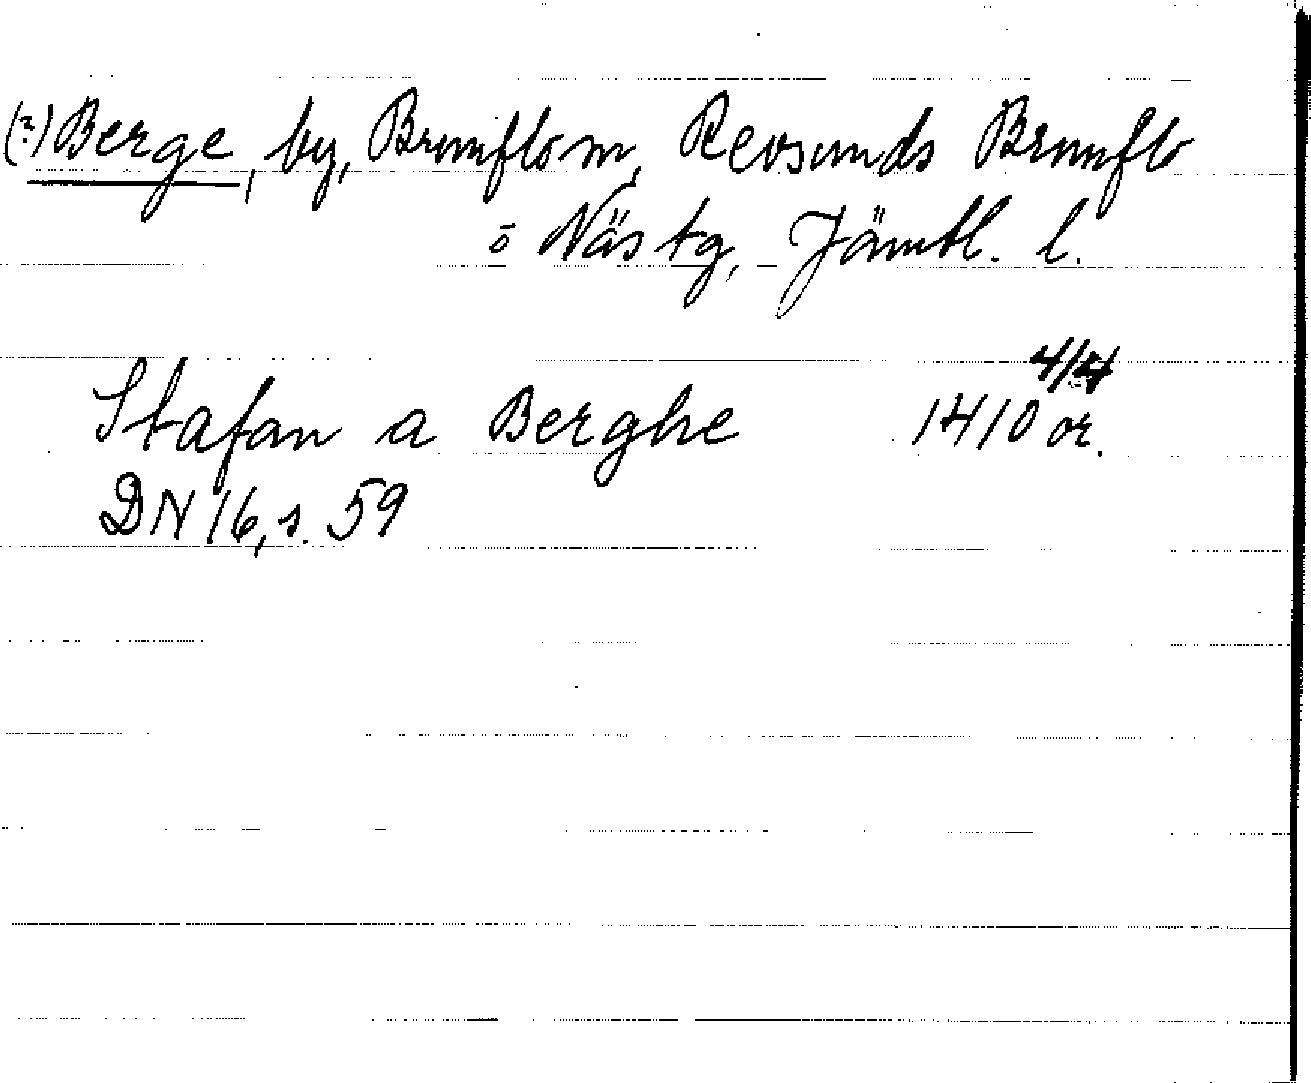 (?) Berge, by, Brunflo sn, Revsunds Brunflo
o Näs tg, Jämtl. l.
4/4
Stafan a Berghe 1410 or.
DN 16, s. 59